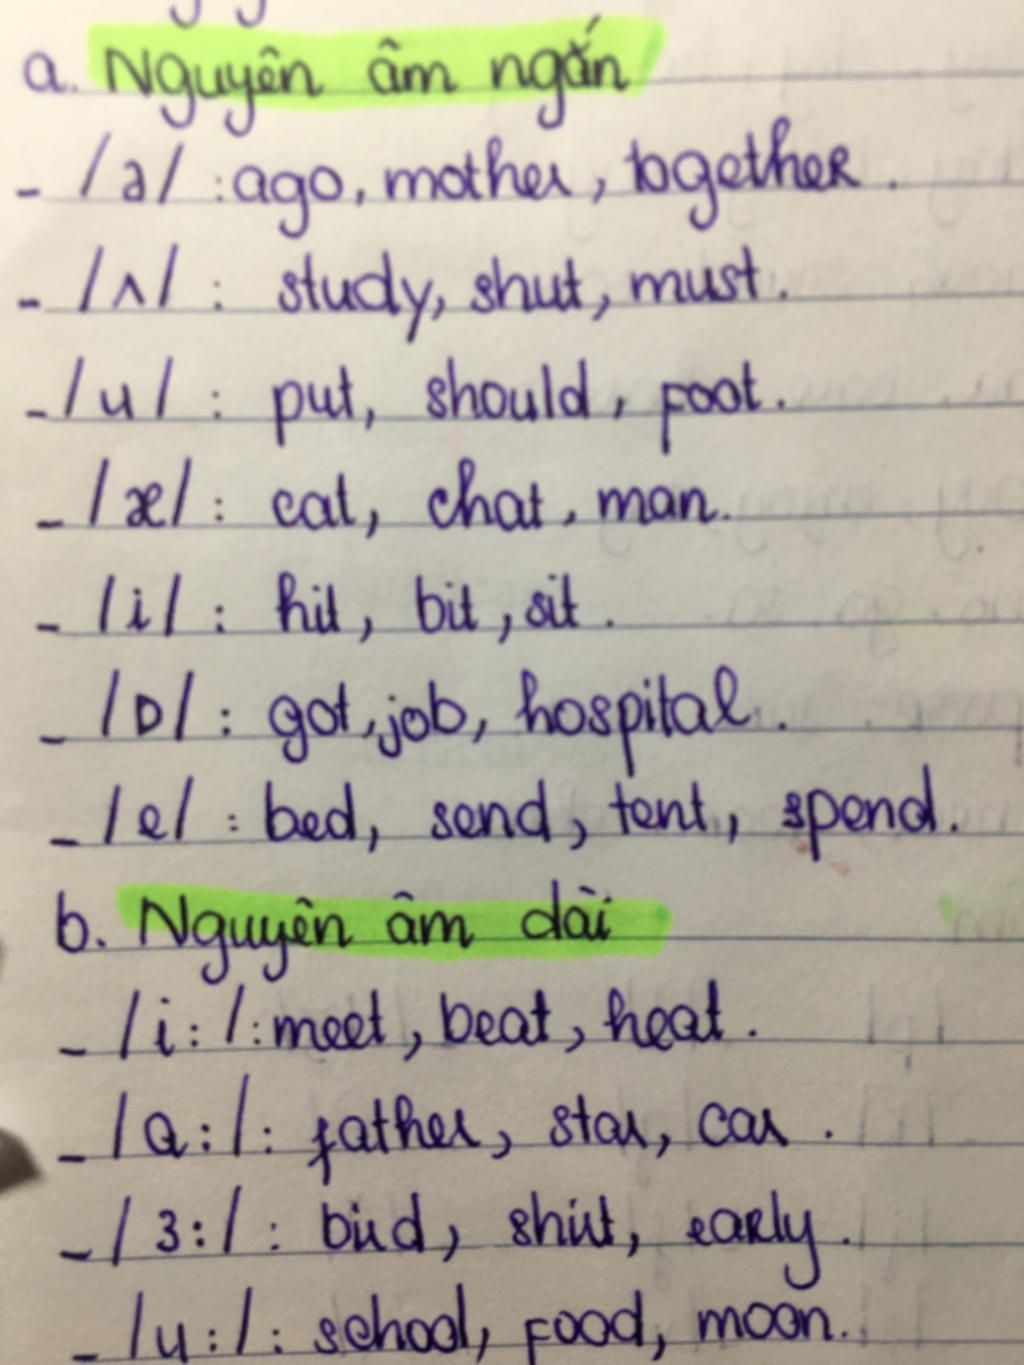 a. Nguyên âm ngắn
- /ə/ : ago, mother, together.
- /ʌ/ : study, shut, must.
- /u/ : put, should, foot.
- /æ/ : cat, chat, man.
- /i/ : hit, bit, sit.
- /ɒ/ : got, job, hospital.
- /e/ : bed, send, tent, spend.
b. Nguyên âm dài
- /i:/ : meet, beat, heat.
- /ɑ:/ : father, star, car.
- /ɜ:/ : bird, shirt, early.
- /u:/ : school, food, moon.